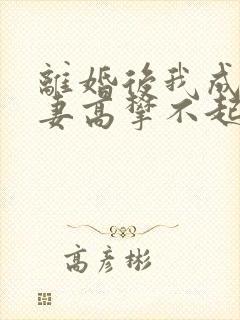 離婚後我成
妻高攀不起
高彥彬